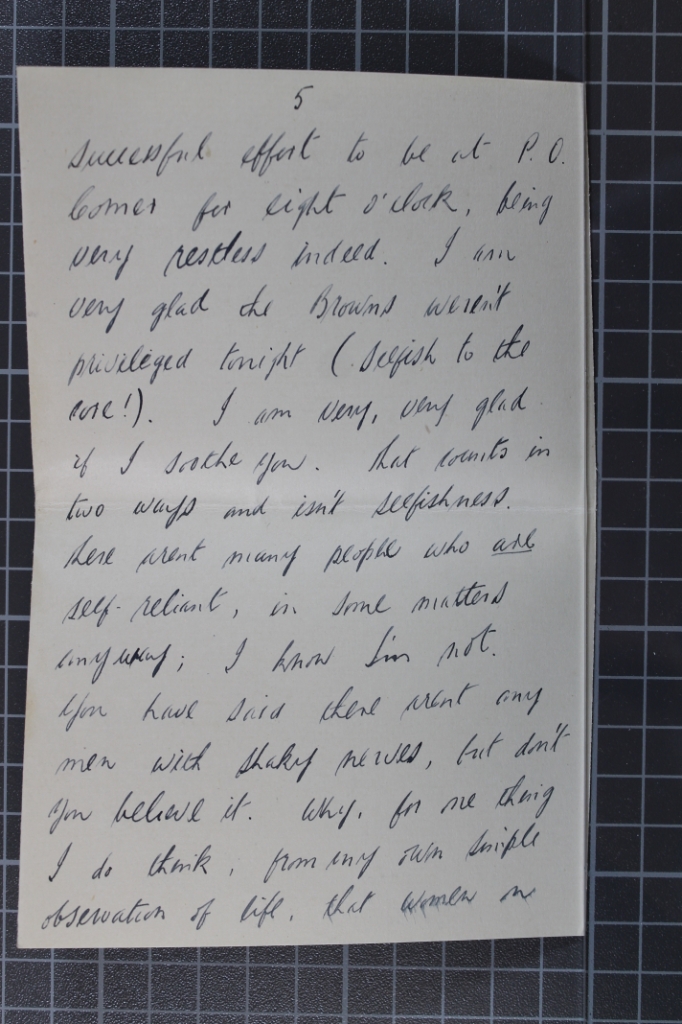 5
successful effort to be at P.O.
Corner for eight o'clock, being
very restless indeed. I am
very glad the Browns weren't
privileged tonight (selfish to the
core!). I am very, very glad
if I soothe you. That counts in
two ways and isn't selfishness.
There arent many people who are
self-reliant, in some matters
anyway; I know I'm not.
You have said there arent any
men with shaky nerves, but don't
you believe it. Why, for one thing
I do think, from my own simple
observation of life, that women on